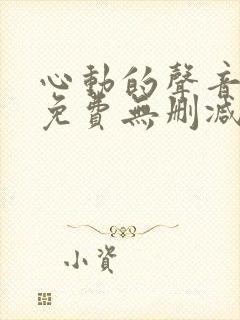 心動的聲音
免費無删減
小資